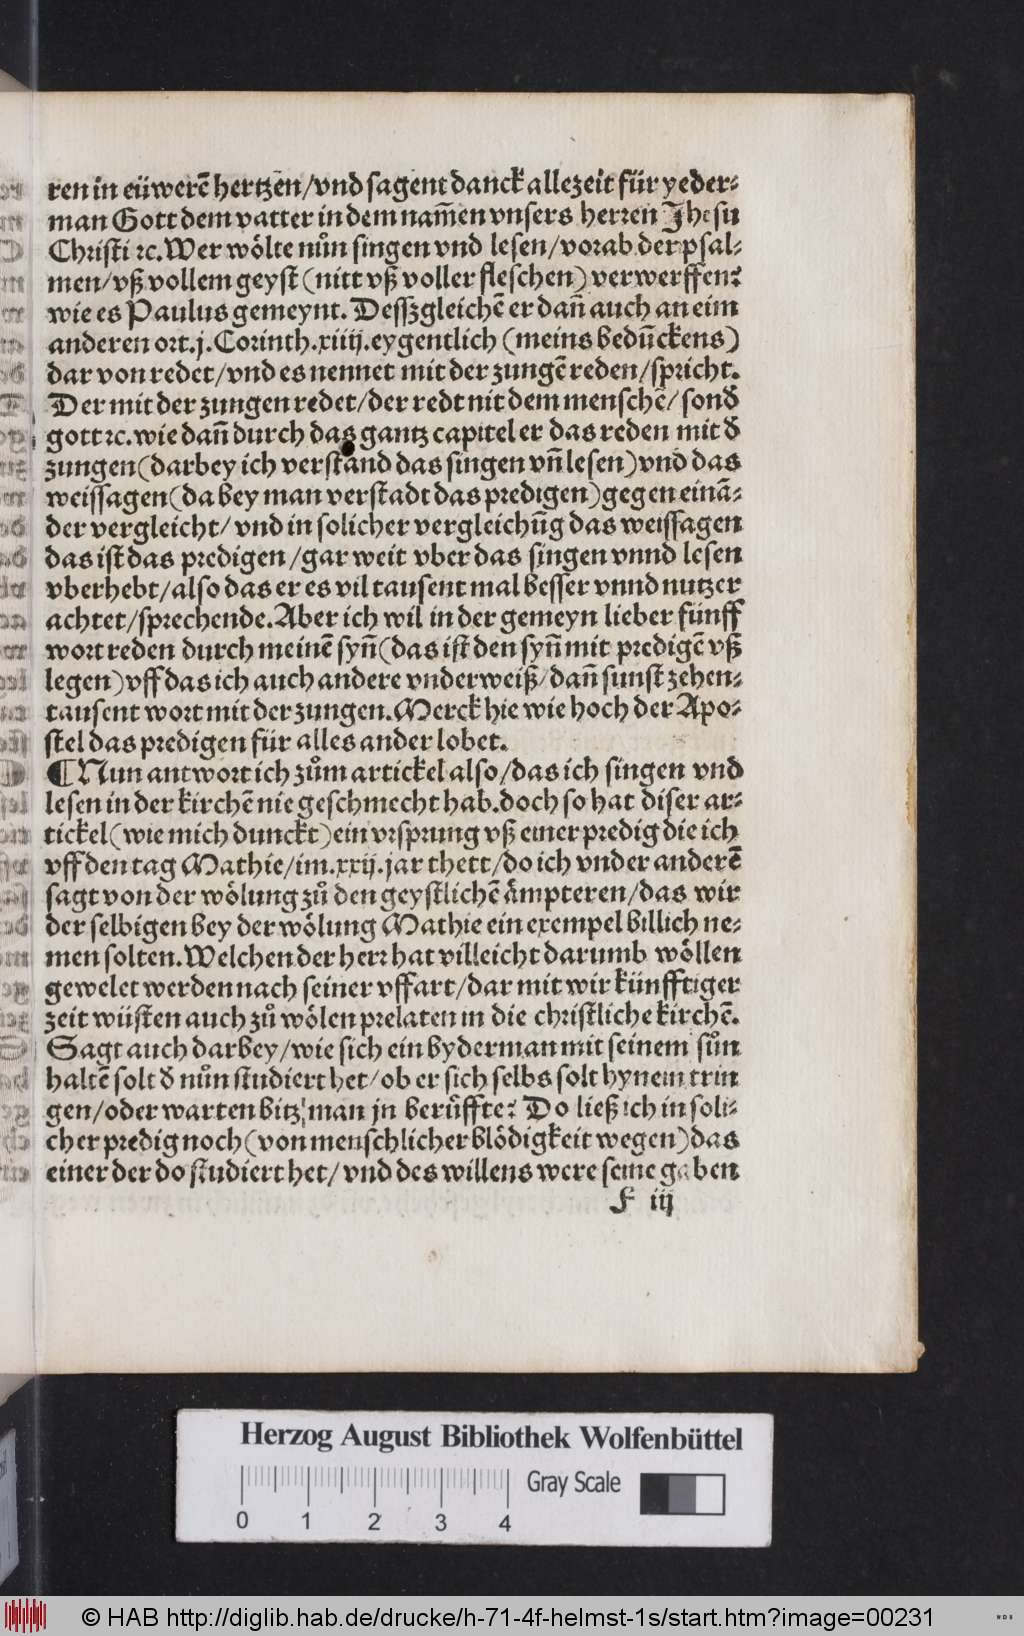 ren in eüwerẽ hertzen/vnd sagent danck allezeit für yeder⸗
man Gott dem vatter in dem nam̃en vnsers herren Jhesu
Christi ꝛc. Wer wölte nůn singen vnd lesen/vorab der psal⸗
men/vß vollem geyst (nitt vß voller fleschen) verwerffen?
wie es Paulus gemeynt. Dessz gleichẽ er dañ auch an eim
anderen ort. j. Corinth. xiiij. eygentlich (meins bedũckens)
dar von redet/vnd es nennet mit der zungẽ reden/spricht.
Der mit der zungen redet/der redt nit dem menschẽ/ sonđ
gott ꝛc. wie dañ durch das gantz capitel er das reden mit đ
zungen (darbey ich verstand das singen vñ lesen) vnd das
weissagen (da bey man verstadt das predigen) gegen einã⸗
der vergleicht/ vnd in solicher vergleichũg das weissagen
das ist das predigen/gar weit vber das singen vnnd lesen
vberhebt/also das er es vil tausent mal besser vnnd nutzer
achtet/sprechende. Aber ich wil in der gemeyn lieber fünff
wort reden durch meinẽ syñ (das ist den syñ mit predigẽ vß
legen) vff das ich auch andere vnderweiß/dañ sunst zehen⸗
tausent wort mit der zungen. Merck hie wie hoch der Apo⸗
stel das predigen für alles ander lobet.
¶ Nun antwort ich zům artickel also/das ich singen vnd
lesen in der kirchẽ nie geschmecht hab. doch so hat diser ar⸗
tickel (wie mich dunckt) ein vrsprung vß einer predig die ich
vff den tag Mathie/im. xxij. jar thett/do ich vnder anderẽ
sagt von der wölung zů den geystlichẽ ämpteren/das wir
der selbigen bey der wölung Mathie ein exempel billich ne⸗
men solten. Welchen der herr hat villeicht darumb wöllen
gewelet werden nach seiner vffart/dar mit wir künfftiger
zeit wüsten auch zů wölen prelaten in die christliche kirchẽ.
Sagt auch darbey/wie sich ein byderman mit seinem sůn
haltẽ solt đ nůn studiert het/ob er sich selbs solt hynein trin
gen/oder warten bitz man jn berůffte? Do ließ ich in soli⸗
cher predig noch (von menschlicher blödigkeit wegen) das
einer der do studiert het/ vnd des willens were seine gaben
F iij
Herzog August Bibliothek Wolfenbüttel
Gray Scale
0 1 2 3 4
© HAB http://diglib.hab.de/drucke/h-71-4f-helmst-1s/start.htm?image=00231
WDB